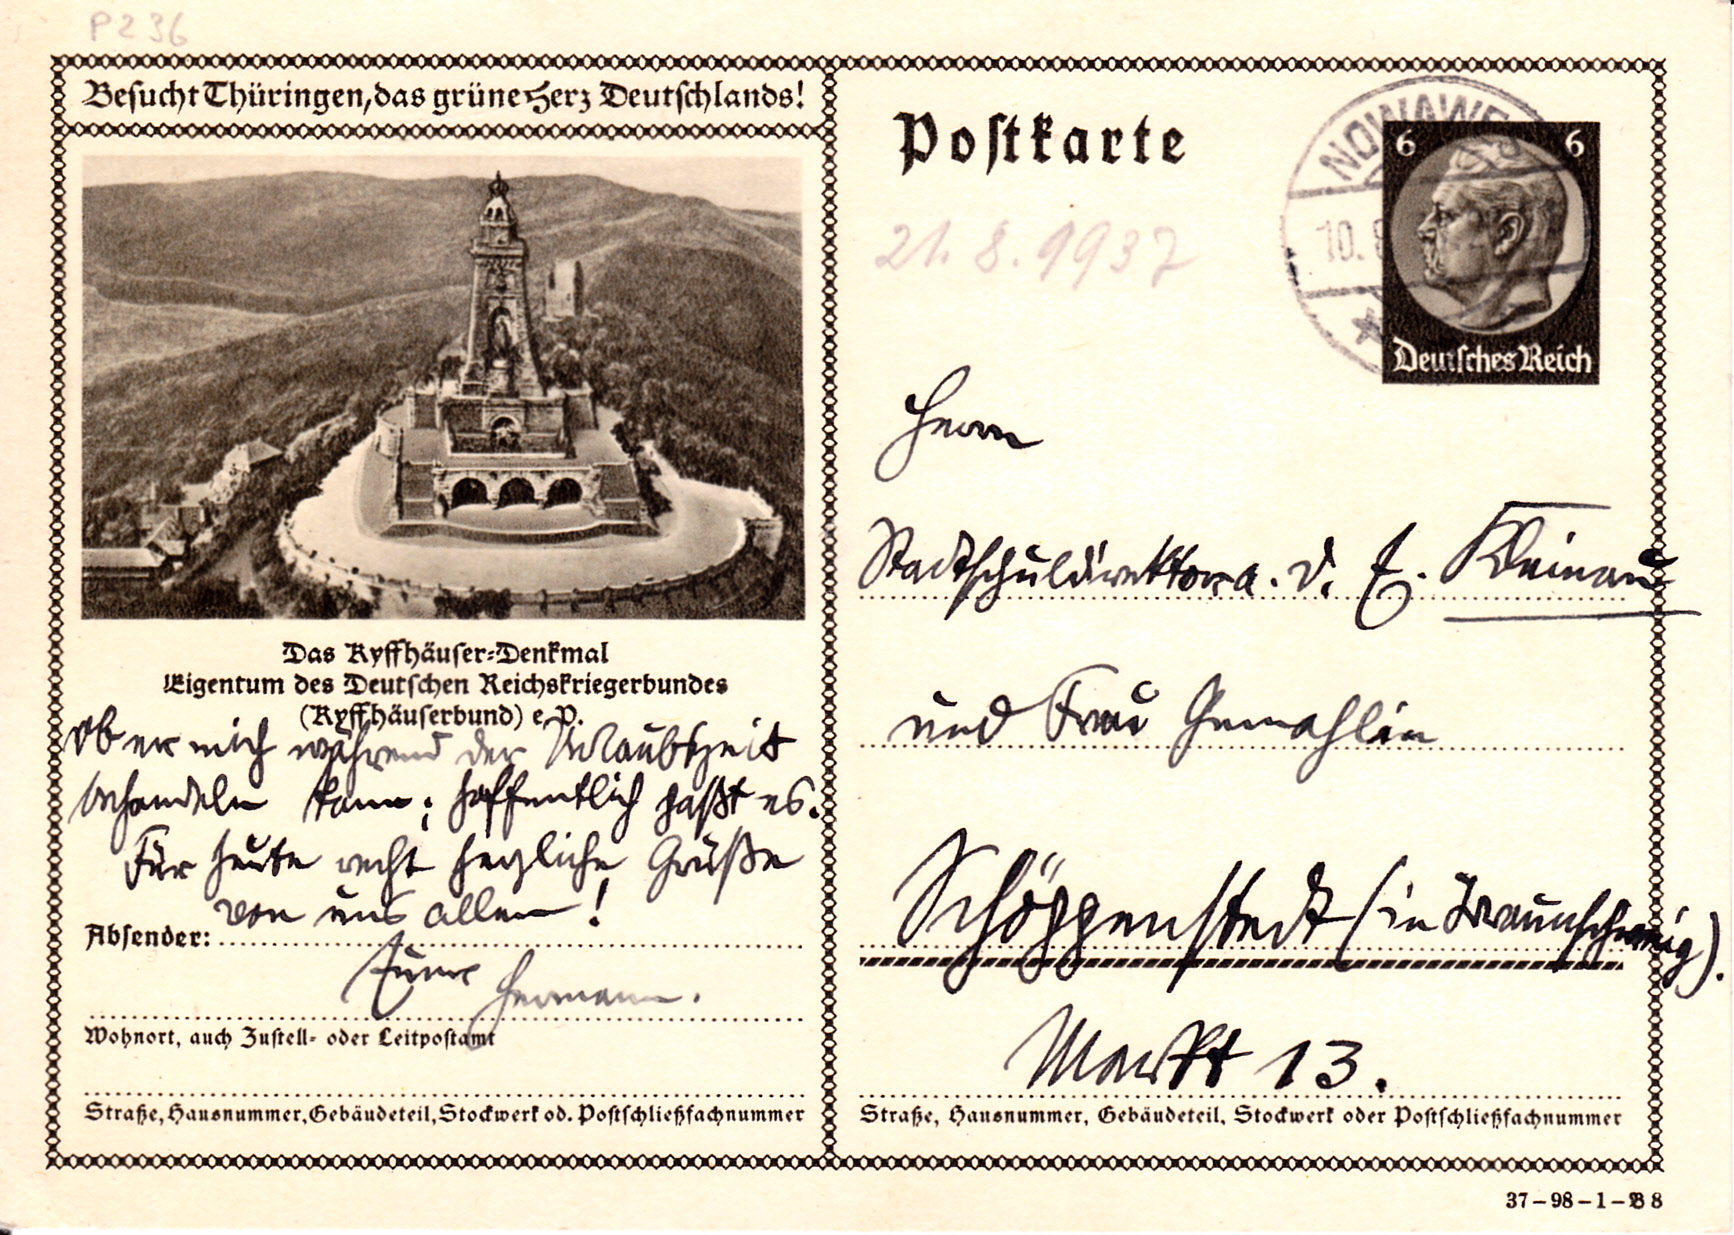 P236
Besucht Thüringen, das grüne Herz Deutschlands!
Das Kyffhäuser-Denkmal
Eigentum des Deutschen Reichskriegerbundes
(Kyffhäuserbund) e. V.
ob er mich während der Urlaubszeit
behandeln kann; hoffentlich paßt es.
Für heute recht herzliche Grüße
von uns allen!
Absender:
Euer Hermann.
Wohnort, auch Zustell- oder Leitpostamt
Straße, Hausnummer, Gebäudeteil, Stockwerk od. Postschließfachnummer
Postkarte
NOWAWES
10.
6 6
Deutsches Reich
21. 8. 1937
Herrn
Stadtschuldirektor a. D. E. Kleinau
und Frau Gemahlin
Schöppenstedt (in Braunschweig).
Markt 13.
Straße, Hausnummer, Gebäudeteil, Stockwerk oder Postschließfachnummer
37–98–1–B 8